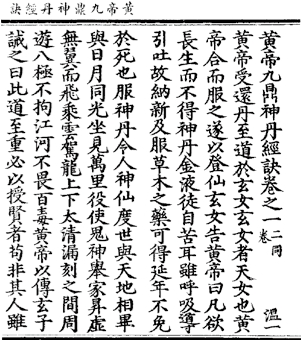 黃帝九鼎神丹經訣
黃帝九鼎神丹經訣卷之一 二同卷 溫一
黃帝受還丹至道於玄女玄女者天女也黃
帝合而服之遂以登仙玄女告黃帝曰凡欲
長生而不得神丹金液徒自苦耳雖呼吸導
引吐故納新及服草木之藥可得延年不免
於死也服神丹令人神仙度世與天地相畢
與日月同光坐見萬里役使鬼神舉家昇虛
無翼而飛乘雲駕龍上下太清漏刻之間周
遊八極不拘江河不畏百毒黃帝以傳玄子
誡之曰此道至重必以授賢者苟非其人雖